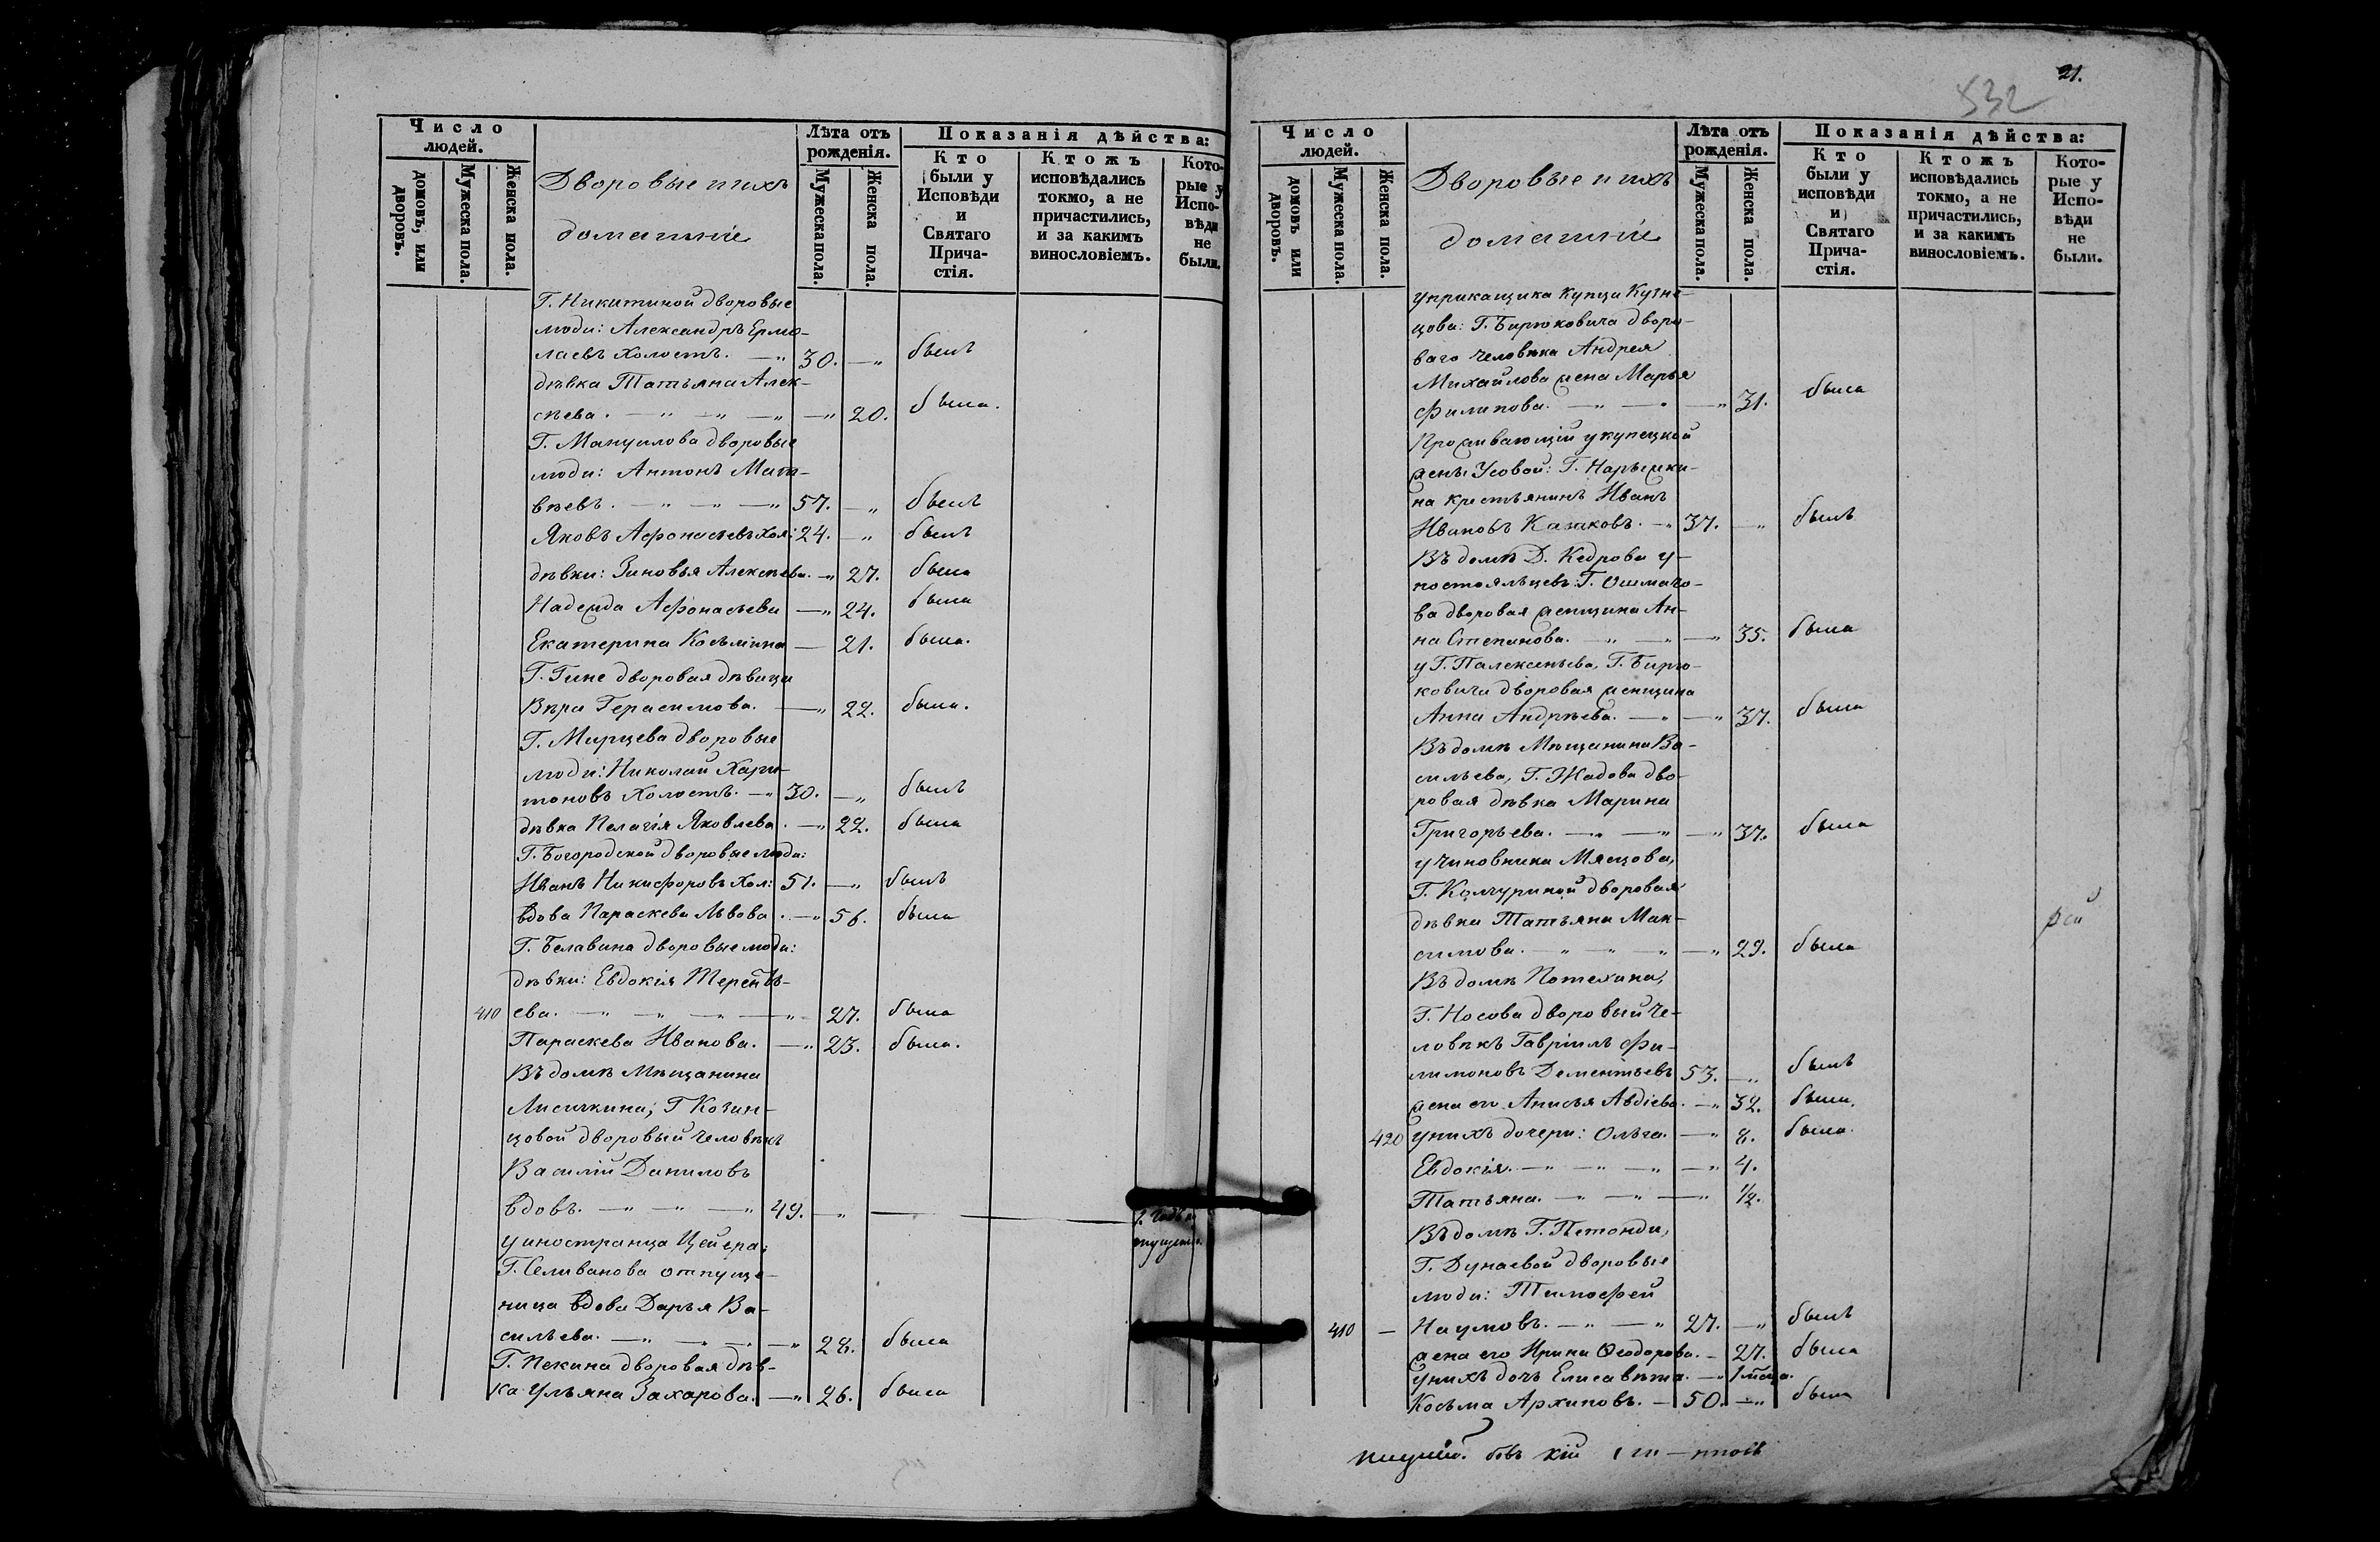 Число людей.
домовъ, или дворовъ.
Мужеска пола.
Женска пола.
Дворовые и ихъ
домашніе
Лѣта отъ рожденія.
Мужеска пола.
Женска пола.
Показанія дѣйства:
Кто были у Исповѣди и Святаго Причастія.
Ктожъ исповѣдались токмо, а не причастились, и за какимъ винословіемъ.
Которые у Исповѣди не были.
Г. Никитиной дворовые
люди: Александръ Ермо-
лаевъ холостъ. — „ 30. — „ былъ
дѣвка Татьяна Алек-
сѣева. — „ — „ — „ — „ 20. была.
Г. Мануилова дворовые
люди: Антонъ Мат-
вѣевъ. — „ — „ — „ 57. — „ былъ
Яковъ Афонасьевъ хол: 24. — „ былъ
дѣвки: Зиновья Алексѣева. — „ 27. была
Надежда Афонасьева — „ 24. была
Екатерина Козьмина — 21. была.
Г. Гине дворовая дѣвица
Вѣра Герасимова. — „ 22. была.
Г. Мирцева дворовые
люди: Николай Хари-
тоновъ холостъ. — „ 30. — „ былъ
дѣвка Пелагія Яковлева. — „ 22. была
Г. Богородской дворовые люди:
Иванъ Никифоровъ хол: 51. — „ былъ
вдова Параскева Львова. — „ 56. была
Г. Белавина дворовые люди:
дѣвки: Евдокія Теренть-
410 ева. — „ — „ — „ — „ 27. была
Параскева Иванова. — „ 23. была.
Въ домѣ Мѣщанина
Лисичкина; Г. Козин-
цовой дворовый человѣкъ
Василій Даниловъ
вдовъ. — „ — „ — „ 49. — „
у иностранца Цейера;
Г. Селиванова отпуще-
ница вдова Дарья Ва-
сильева. — „ — „ — „ — „ 28. была
Г. Пекина дворовая дѣв-
ка Ульяна Захарова. — „ 26. была
21.
532
Число людей.
домовъ или дворовъ.
Мужеска пола.
Женска пола.
Дворовые и ихъ
домашніе
Лѣта отъ рожденія.
Мужеска пола.
Женска пола.
Показанія дѣйства:
Кто были у исповѣди и Святаго Причастія.
Ктожъ исповѣдались токмо, а не причастились, и за какимъ винословіемъ.
Которые у Исповѣди не были.
у прикащика купца Кузне-
цова: Г. Бирюковича дворо-
ваго человѣка Андрея
Михайлова жена Марья
Филипова. — „ — „ — „ 31. была
Проживающій у купецкой
жены Усовой: Г. Нарышки-
на крестьянинъ Иванъ
Ивановъ Казаковъ. — „ 37. — „ былъ
Въ домѣ Д. Кедрова у
постояльцевъ: Г.
ва дворовая женщина Ан-
на Степанова. — „ — „ — „ 35. была
у Г. Палексеньева, Г. Бирю-
ковича дворовая женщина
Анна Андрѣева. — „ — „ 37. была
Въ домѣ Мѣщанина Ва-
сильева, Г. Жадова дво-
ровая дѣвка Марина
Григорьева. — „ — „ — „ 37. была
у чиновника Мясцова,
Г. Колчуриной дворовая
дѣвка Татьяна Мак-
симова. — „ — „ — „ — „ 29. была
Въ домѣ Потехина,
Г. Носова дворовый че-
ловѣкъ Гавріилъ Фи-
лимоновъ Дементьевъ 53. — „ былъ
жена его Анисья Авдіева. — „ 32. была.
420 у нихъ дочери: Ольга. — „ 8. была.
Евдокія. — „ — „ — „ — „ 4.
Татьяна. — „ — „ — „ 1/2.
Въ домѣ Г. Петонди,
Г. Дунаевой дворовые
люди: Тимофей
410 — Наумовъ. — „ — „ 27. — „ былъ
жена его Ирина Ѳеодорова. — 27. была
у нихъ дочь Елисавета. — „ 1 мѣсяца.
Косьма Архиповъ. — 50. — „ былъ